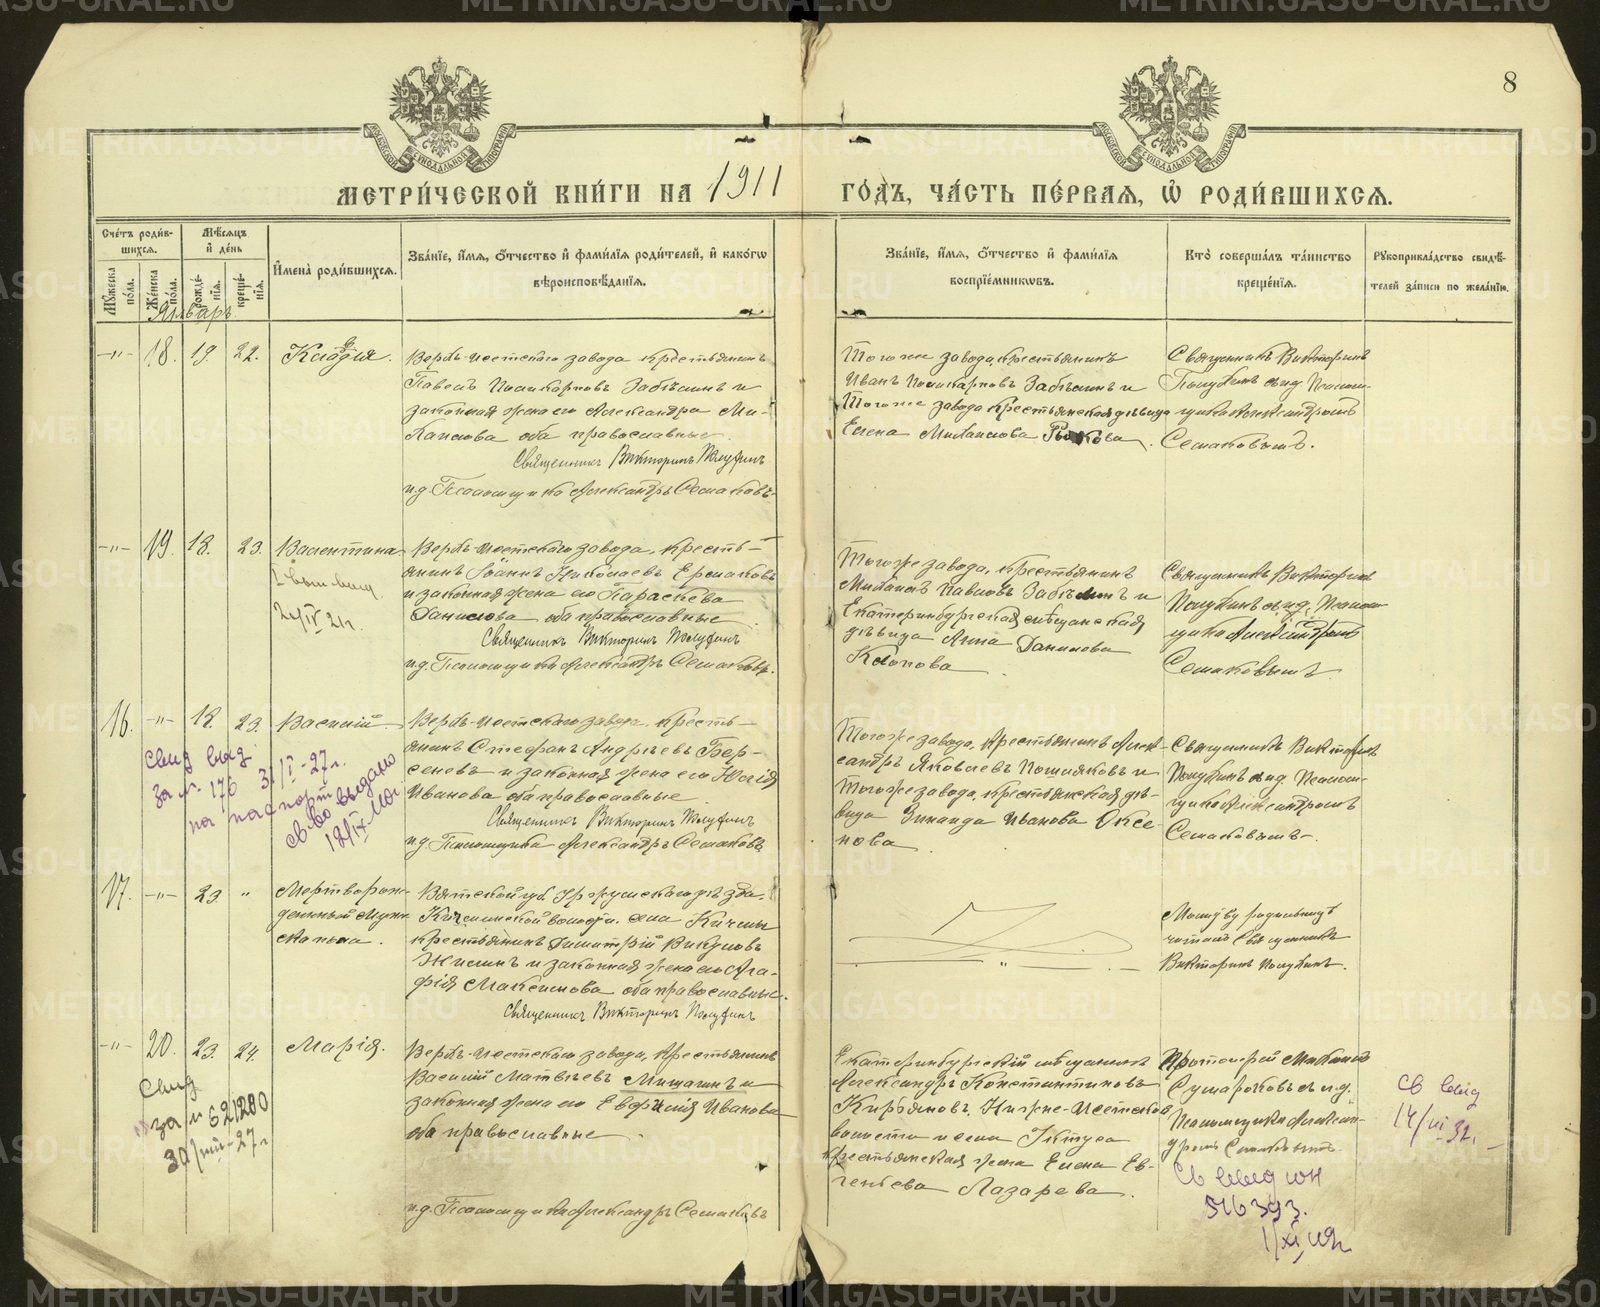 8
МЕТРИ́ЧЕСКОЙ КНИ́ГИ НА 1911 ГО́ДЪ, ЧА́СТЬ ПЕ́РВАЯ, Ѡ҆ РОДИ́ВШИХСЯ.
Сче́тъ роди́в-
шихся.
Му́жеска по́ла.
Же́нска по́ла.
Мѣ́сяцъ
и҆ де́нь
рожде́-
нїя.
креще́-
нїя.
И҆мена̀ роди́вшихся.
Зва́нїе, и҆́мя, о҆́тчество и҆ фами́лїя роди́телей, и҆ како́гѡ
вѣроисповѣ́данїя.
Зва́нїе, и҆́мя, о҆́тчество и҆ фами́лїя
воспрїе́мникѡвъ.
Кто̀ соверша́лъ та́инство
креще́нїя.
Рꙋкоприкла́дство свидѣ́-
телей за́писи по жела́нїю.
Январь
18. 19. 22. Клавдія.
Верхъ-Исетского завода крестьянинъ
Павелъ Поликарповъ Забѣлинъ и
законная жена его Александра Ми-
хайлова оба православные.
Священникъ Викторинъ Полуфинъ
и.д. Псаломщика Александръ Семаковъ
Того же завода, крестьянинъ
Иванъ Поликарповъ Забѣлинъ и
Того же завода крестьянская дѣвица
Елена Михаилова
Священникъ Викторинъ
и.д. Псалом-
щика Александромъ
Семаковымъ.
19. 18. 23. Валентина
Верхъ-Исетского завода, кресть-
янинъ Іоаннъ Николаевъ Ермаковъ
и законная жена его Параскева
Данилова оба православные
Священникъ Викторинъ Полуфинъ
и.д. Псаломщика Александръ Семаковъ.
Того же завода, крестьянинъ
Михаилъ Павловъ Забѣлинъ и
Екатеринбургская мѣщанская
дѣвица Анна Данилова
Священникъ Викторинъ
и.д. Псалом-
щика Александромъ
Семаковымъ
16. 18. 23. Василій
свид выд
за № 176 31/I-27 г.
на паспорт
св-во выдано
Верхъ-Исетского завода, кресть-
янинъ Стефанъ Андреевъ Бер-
сеневъ и законная жена его Юлія
Иванова оба православные
Священникъ Викторинъ Полуфинъ
и.д. Псаломщика Александръ Семаковъ
Того же завода, крестьянинъ Алек-
сандръ Яковлевъ Пошляковъ и
Того же завода, крестьянская дѣ-
вица Зинаида Иванова Оксе-
нова
Священникъ Викторинъ
и.д. Псалом-
щика Александромъ
Семаковымъ
17. 23. Мертворож-
денный муж-
ска пола.
Вятской губ. Уржумского уѣзда,
Кичминской волости, села Кичмы
крестьянинъ Димитрій Викуловъ
Жилинъ и законная жена его Ага-
фія Максимова оба православные.
Священникъ Викторинъ Полуфинъ
Молитву родильницѣ
читалъ Священникъ
Викторинъ Полуфинъ.
20. 23. 24. Марія.
Свид
за № 621280
30/VIII-27 г
Верхъ-Исетского завода, крестьянинъ
Василій Матвѣевъ Мишагинъ и
законная жена его Евфимія Иванова
оба православные
и.д. Псаломщика Александръ Семаковъ
Екатеринбургскій мѣщанинъ
Александръ Константиновъ
Кирьяновъ, Нижне-Исетской
волости и села
крестьянская жена Елена Ев-
геньева Лазарева.
Протоіерей Михаилъ
Сушарковъ и и.д.
Псаломщика Алексан-
дромъ Семаковымъ.
Св выд ЮН
516393.
Св выд
14/VI 32.